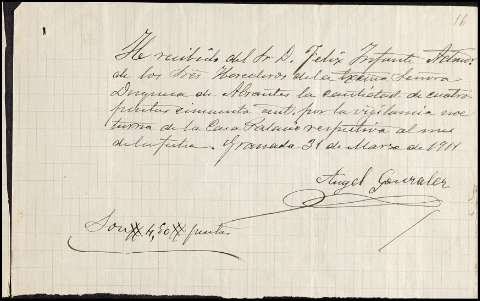 16
He recibido del Sr D. Felix Infante, Admor.
de los Sres Herederos de la Excma Señora
Duquesa de Abrantes la cantidad de cuatro
pesetas cincuenta cent. por la vigilancia noc
turna de la Casa Palacio respectiva al mes
de la fecha. Granada 31 de Marzo de 1911
Angel Gonzalez
Son 4,50 pesetas